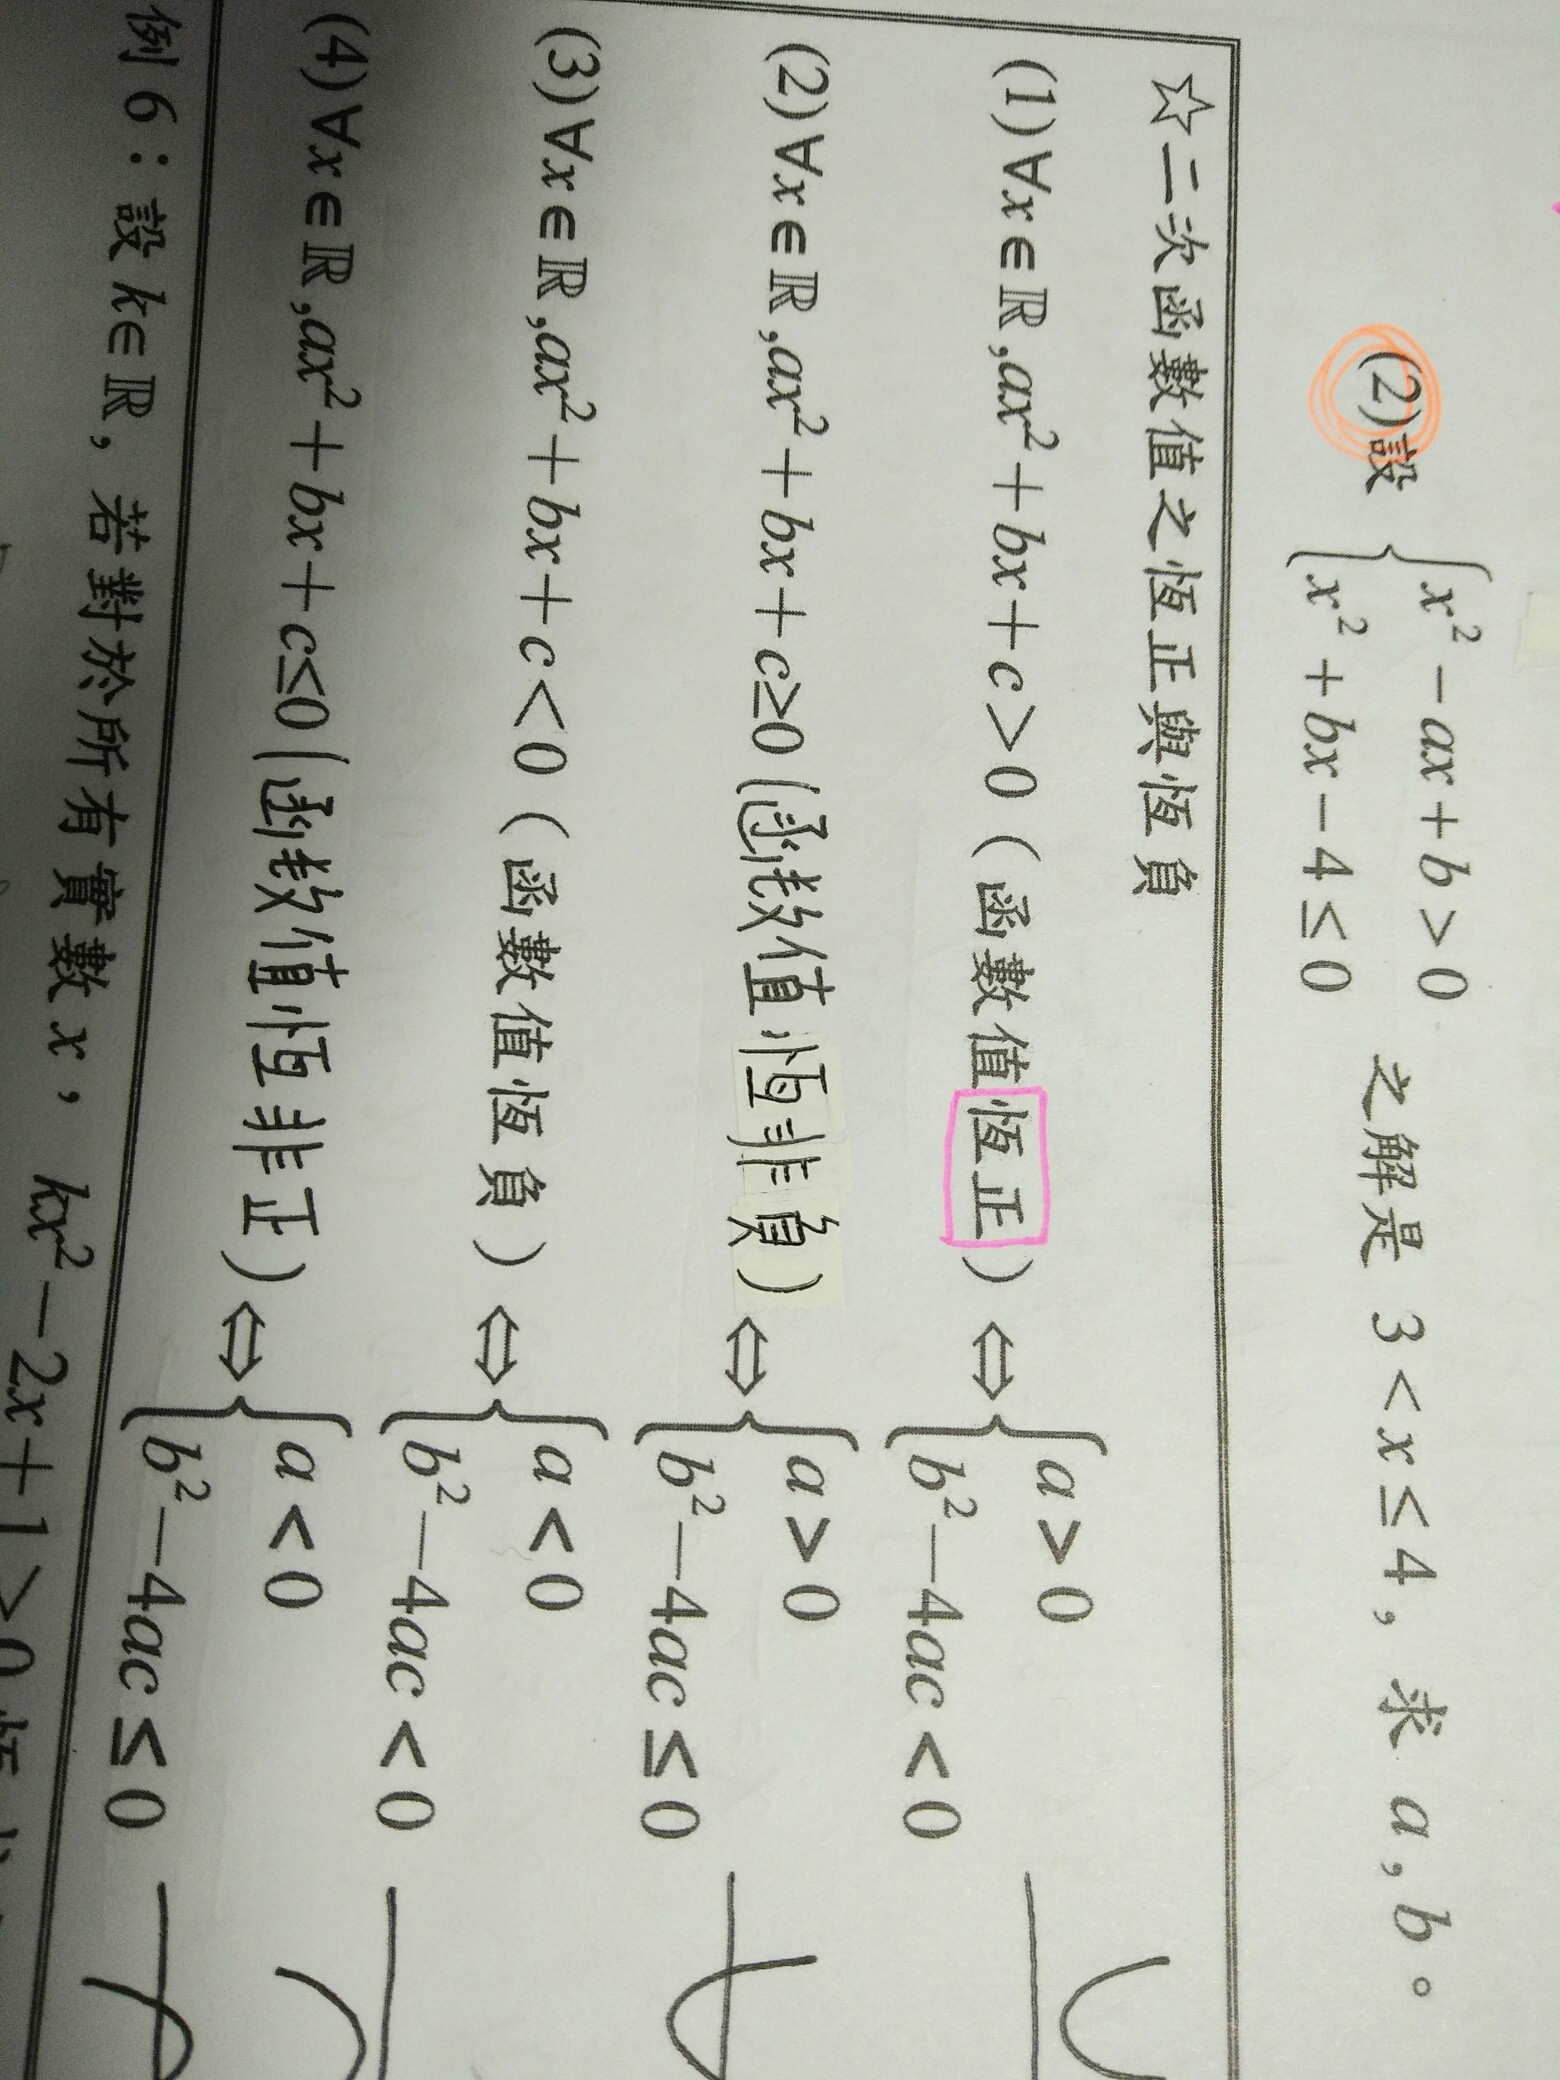 (2)設 { x² − ax + b > 0
x² + bx − 4 ≤ 0 之解是 3 < x ≤ 4, 求 a, b。
☆二次函數值之恆正與恆負
(1)∀x∈ℝ,ax²+bx+c>0(函數值恆正)⇔{ a>0
b²−4ac<0
(2)∀x∈ℝ,ax²+bx+c≥0(函數值恆非負)⇔{ a>0
b²−4ac≤0
(3)∀x∈ℝ,ax²+bx+c<0(函數值恆負)⇔{ a<0
b²−4ac<0
(4)∀x∈ℝ,ax²+bx+c≤0(函數值恆非正)⇔{ a<0
b²−4ac≤0
例6:設k∈ℝ, 若對於所有實數x, kx²−2x+1>0